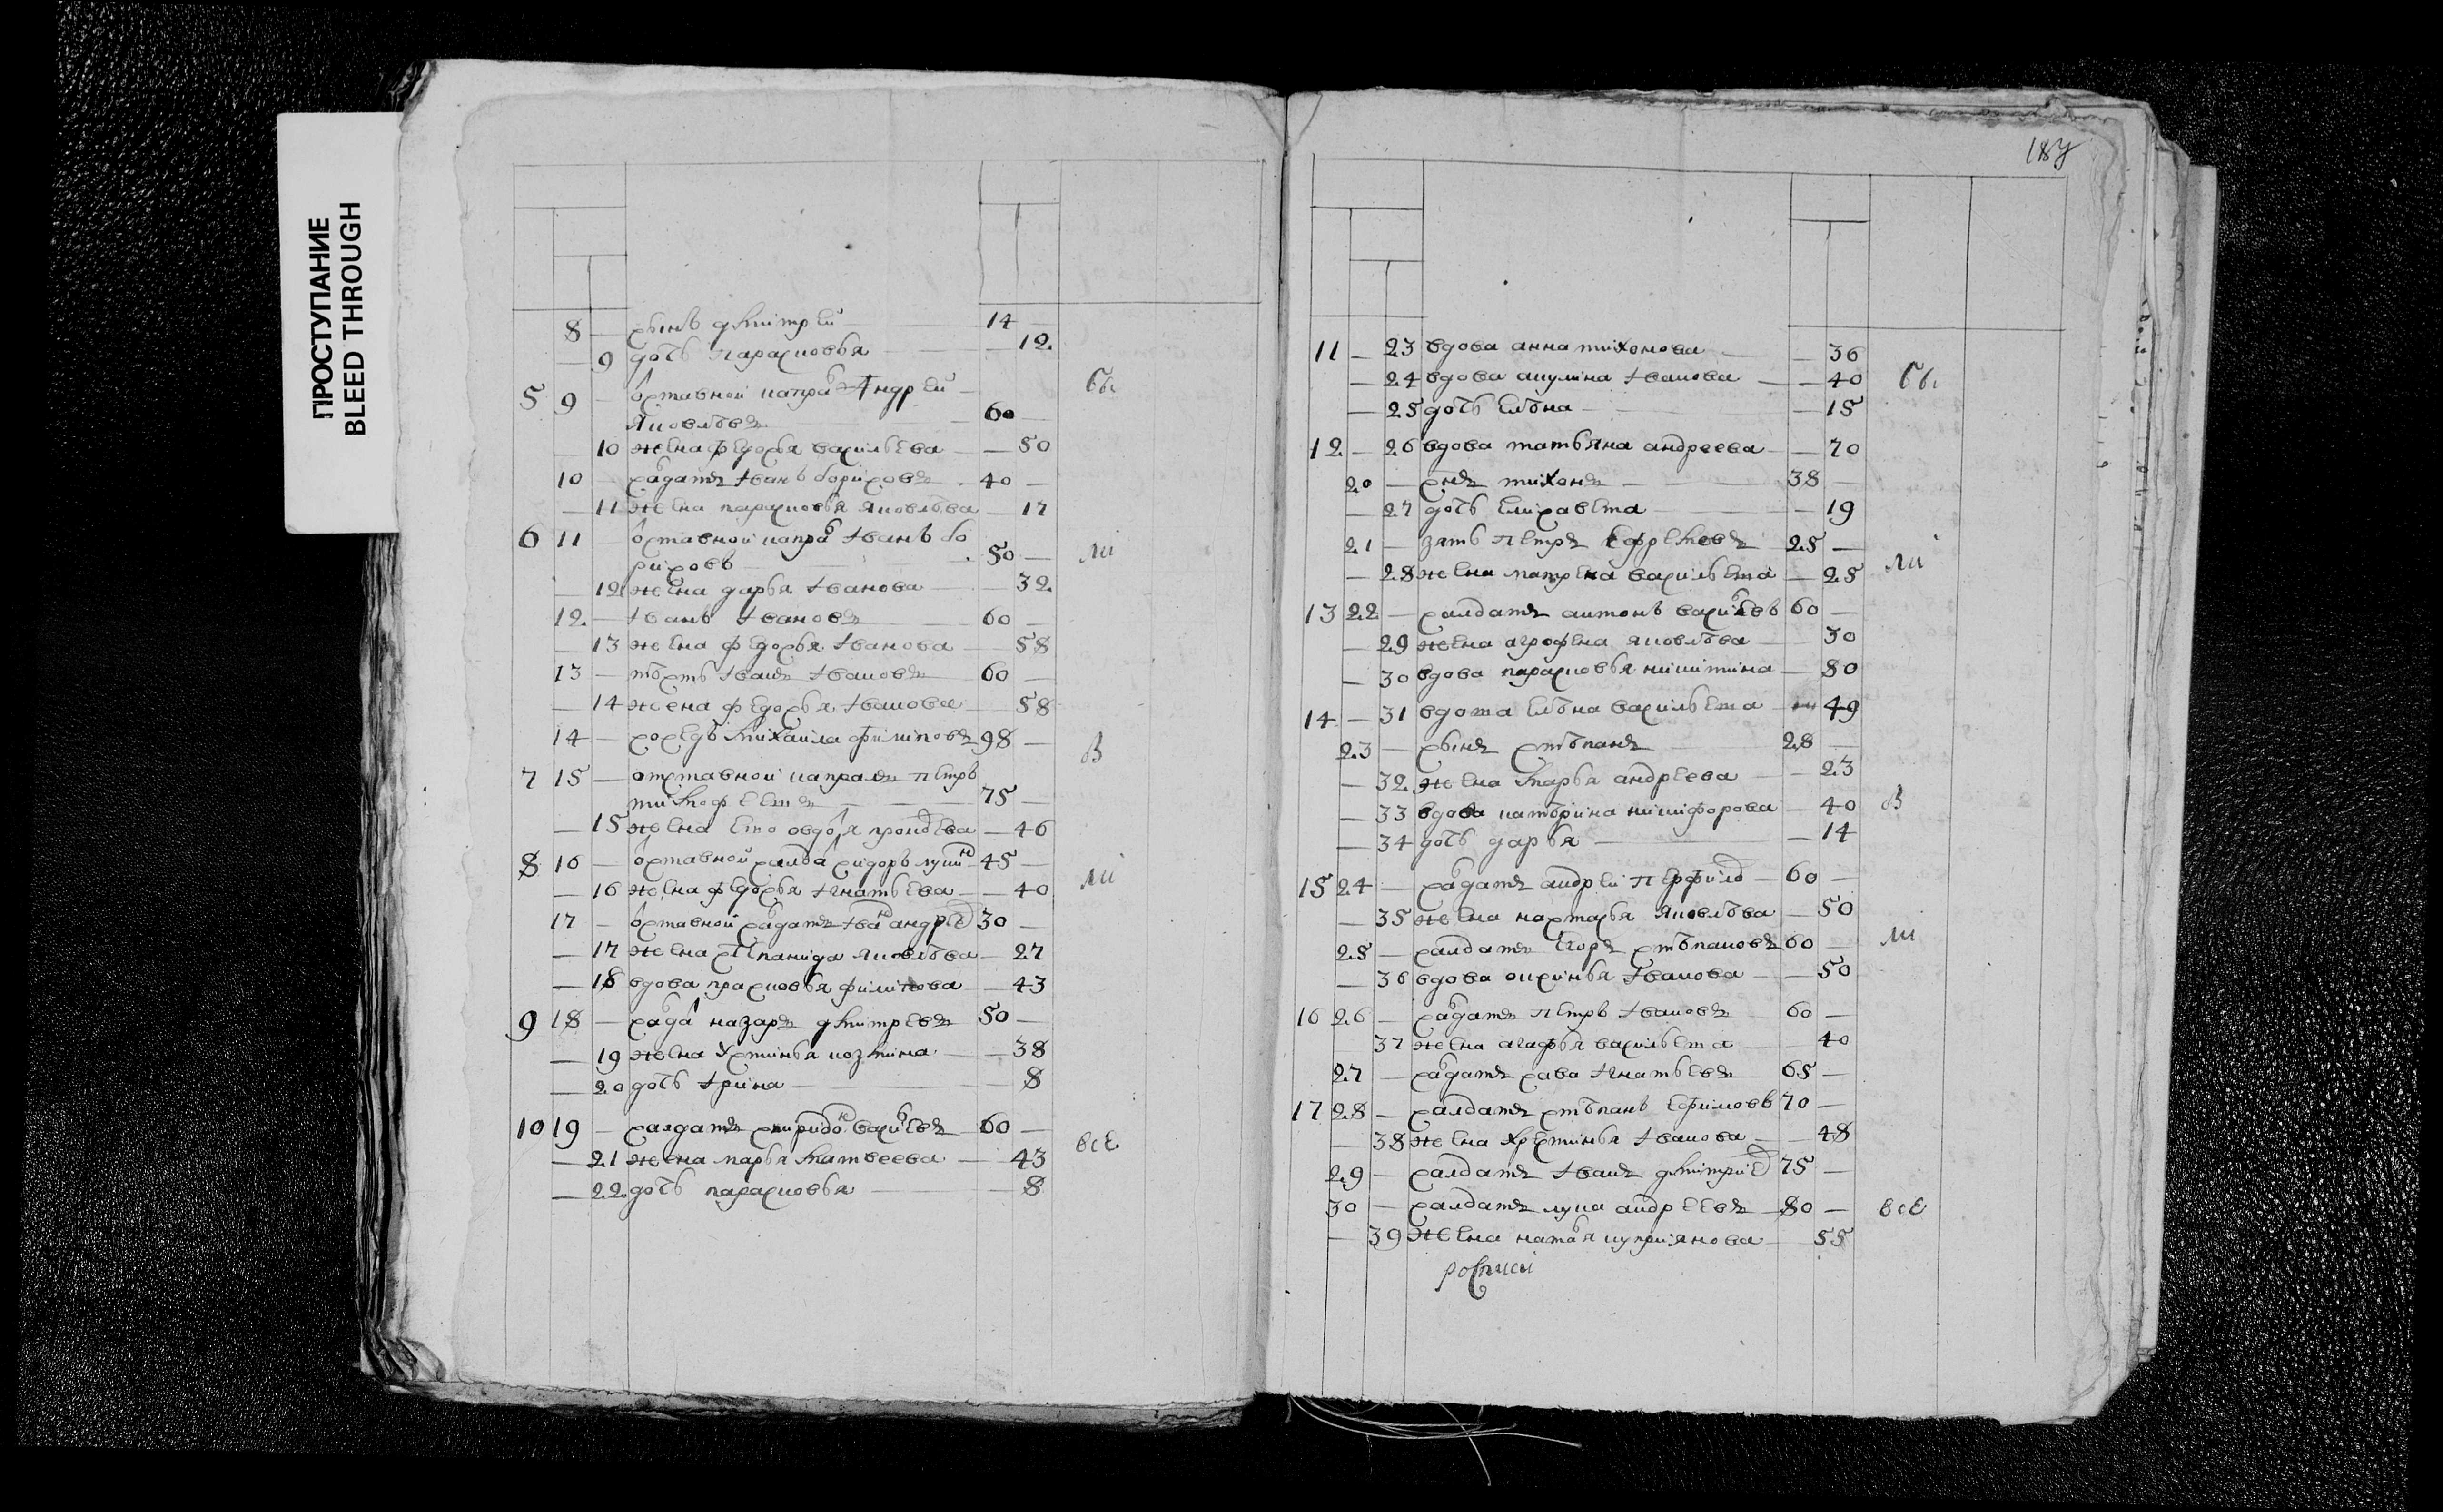 ПРОСТУПАНИЕ
BLEED THROUGH
8 — сынъ дмитреи 14 —
— 9 дочь парасковья — 12
5 9 — отставнои капра Андреи
Яковлевъ 60 —
— 10 жена федосья васильева — 50
10 — салдатъ иванъ борисовъ 40 —
— 11 жена парасковья яковлева — 17
6 11 — отставнои капра иванъ бо
рисовъ 50 —
— 12 жена дарья иванова — 32
12 — иванъ ивановъ 60 —
— 13 жена федосья иванова — 58
13 — тесть иванъ ивановъ 60 —
— 14 жена федосья иванова — 58
14 — соседъ михаила филиповъ 98 —
7 15 — отставнои капралъ петръ
тимофеевъ 75 —
— 15 жена ево овдотья — 46
8 16 — отставнои салда сидоръ лукин 45 —
— 16 жена федосья игнатьева — 40
17 — отставнои салдатъ иван андрее 30 —
— 17 жена степанида яковлева — 27
— 18 вдова прасковья филипова — 43
9 18 — салда назаръ дмитревъ 50 —
— 19 жена хрстинья козмина — 38
— 20 дочь ирина — 8
10 19 — салдатъ спиридон васильевъ 60 —
— 21 жена марья матвеева — 43
— 22 дочь парасковья — 8
бы
ли
в
ли
все
187
11 — 23 вдова анна тихонова — 36
— 24 вдова акулина иванова — 40
— 25 дочь елена — 15
12 — 26 вдова татьяна андреева — 70
20 — снъ тихонъ 38 —
— 27 дочь елисавета — 19
21 — зять петръ ефремовъ 25 —
— 28 жена матрена васильева — 25
13 22 — салдатъ антонъ васильевъ 60 —
— 29 жена агрофена яковлева — 30
— 30 вдова парасковья никитина — 80
14 — 31 вдова елена васильева — 49
23 — сынъ степанъ 28 —
— 32 жена марья андреева — 23
— 33 вдова катерина никифорова — 40
— 34 дочь дарья — 14
15 24 — салдатъ андреи перфило 60 —
— 35 жена настасья яковлева — 50
25 — салдатъ егоръ степановъ 60 —
— 36 вдова оксинья иванова — 50
16 26 — салдатъ петръ ивановъ 60 —
— 37 жена агафья васильева — 40
27 — салдатъ сава игнатьевъ 65 —
17 28 — салдатъ степанъ ефимовъ 70 —
— 38 жена хрестинья иванова — 48
29 — салдатъ иванъ дмитрие 75 —
30 — салдатъ лука андреевъ 80 —
— 39 жена наталья куприянова 55
бы
ли
в
ли
все